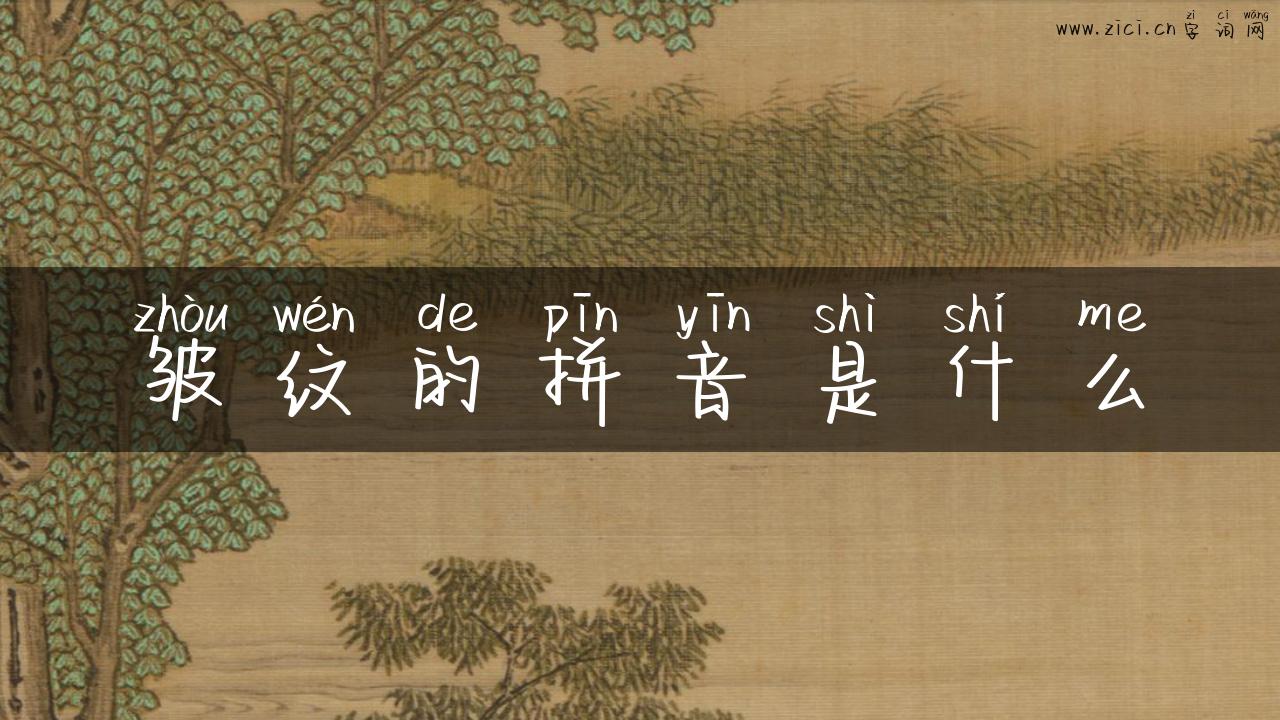 zì cí wǎng
www.zici.cn字词网
zhòu wén de pīn yīn shì shí me
皱纹的拼音是什么